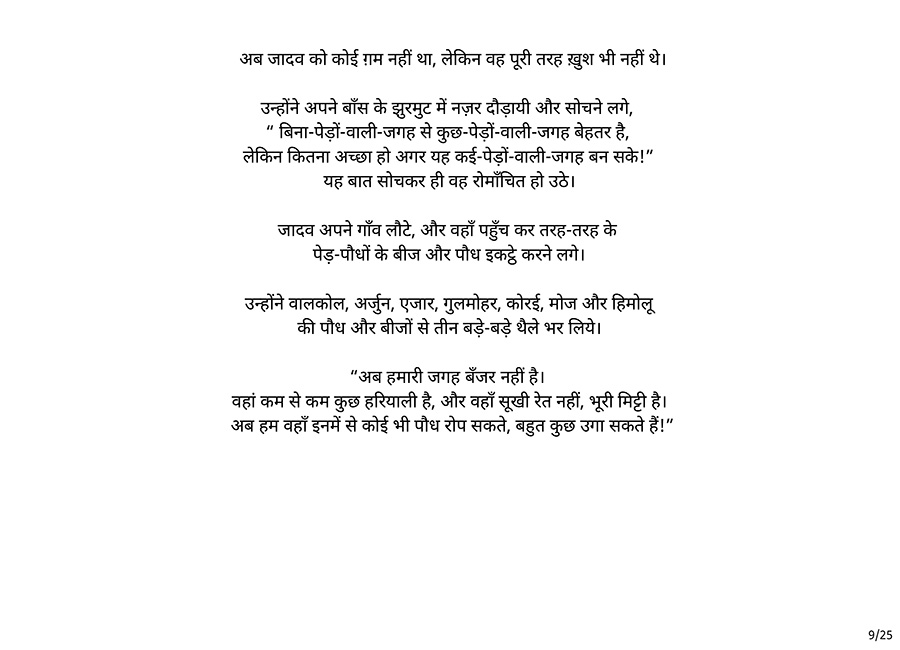 अब जादव को कोई ग़म नहीं था, लेकिन वह पूरी तरह ख़ुश भी नहीं थे।
उन्होंने अपने बाँस के झुरमुट में नज़र दौड़ायी और सोचने लगे,
“ बिना-पेड़ों-वाली-जगह से कुछ-पेड़ों-वाली-जगह बेहतर है,
लेकिन कितना अच्छा हो अगर यह कई-पेड़ों-वाली-जगह बन सके!”
यह बात सोचकर ही वह रोमाँचित हो उठे।
जादव अपने गाँव लौटे, और वहाँ पहुँच कर तरह-तरह के
पेड़-पौधों के बीज और पौध इकट्ठे करने लगे।
उन्होंने वालकोल, अर्जुन, एजार, गुलमोहर, कोरई, मोज और हिमोलू
की पौध और बीजों से तीन बड़े-बड़े थैले भर लिये।
“अब हमारी जगह बँजर नहीं है।
वहां कम से कम कुछ हरियाली है, और वहाँ सूखी रेत नहीं, भूरी मिट्टी है।
अब हम वहाँ इनमें से कोई भी पौध रोप सकते, बहुत कुछ उगा सकते हैं!”
9/25